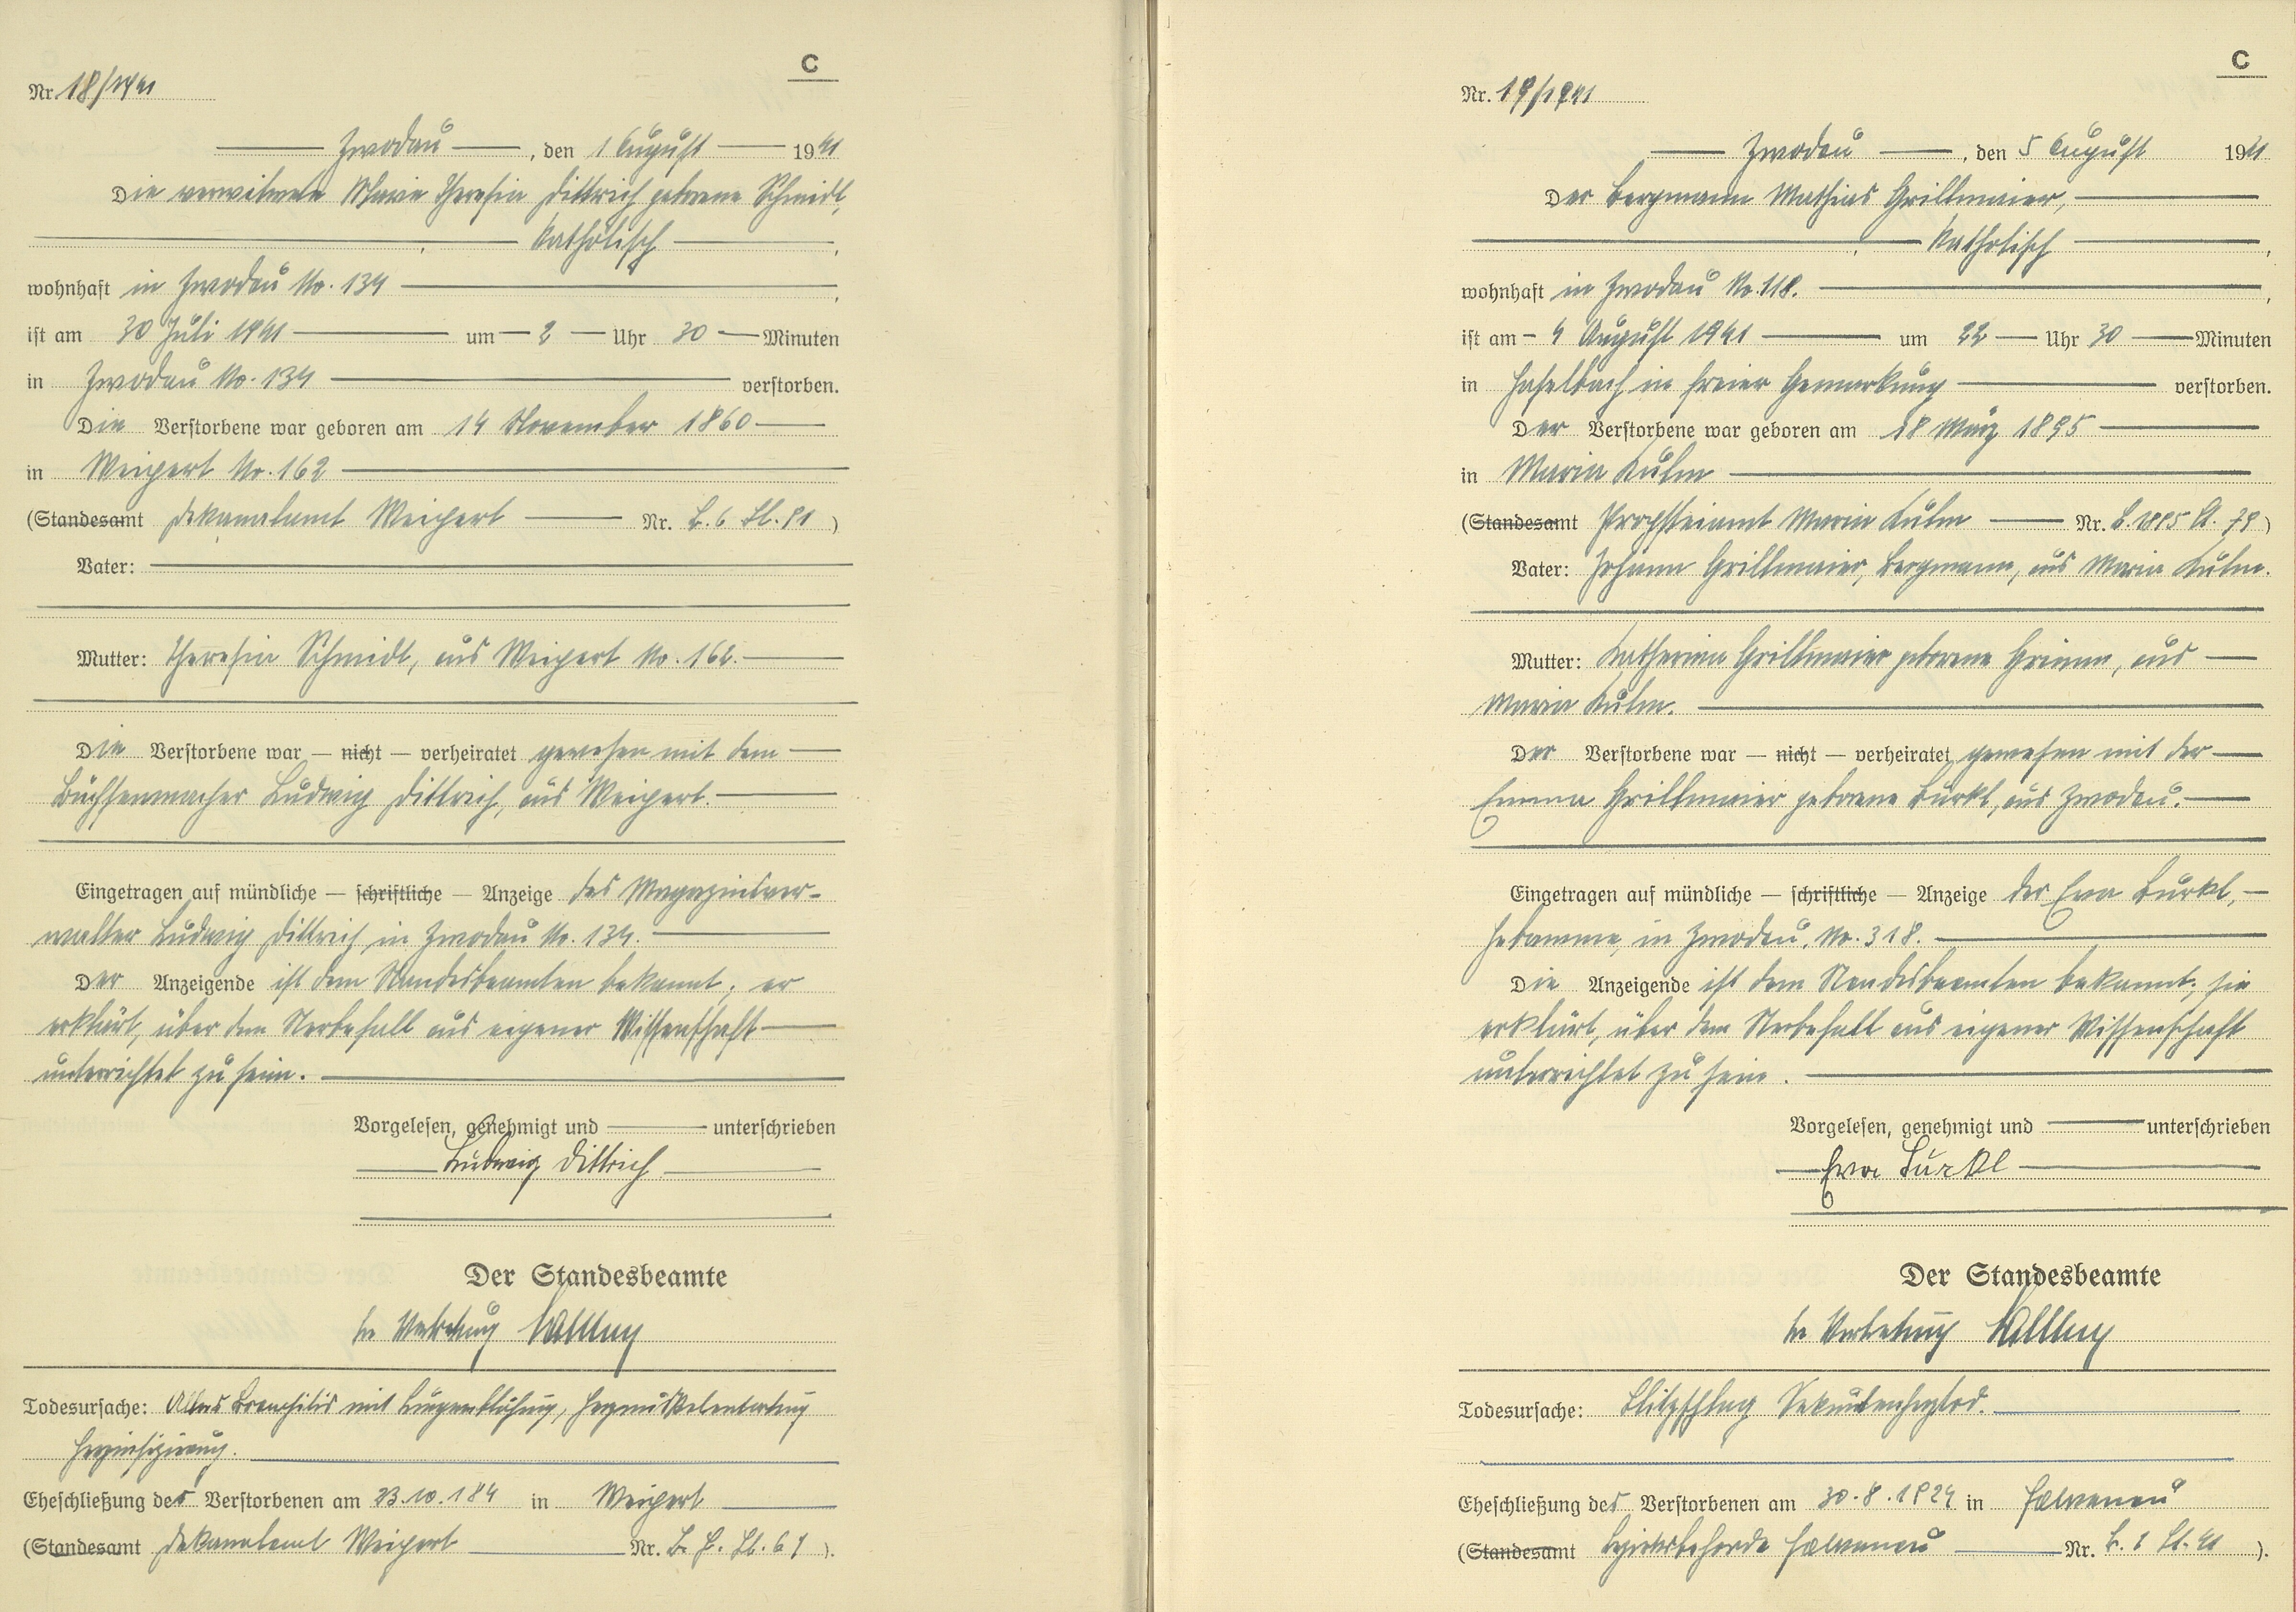 C
Nr. 18/1941
Zwodau, den 1 August 1941
Die verwitwete Marie Theresia Dittrich geborene Schmidt,
katholisch,
wohnhaft in Zwodau No. 134,
ist am 30 Juli 1941 um 2 Uhr 30 Minuten
in Zwodau No. 134 verstorben.
Die Verstorbene war geboren am 14 November 1860
in Weipert No. 162
(Standesamt Dekanalamt Weipert Nr. B. 6 Bl. 91)
Vater:
Mutter: Theresia Schmidt, aus Weipert No. 162.
Die Verstorbene war — nicht — verheiratet gewesen mit dem
Büchsenmacher Ludwig Dittrich, aus Weipert.
Eingetragen auf mündliche — schriftliche — Anzeige des Magazinsver-
walter Ludwig Dittrich in Zwodau No. 134.
Der Anzeigende ist dem Standesbeamten bekannt; er
erklärt, über dem Sterbefall aus eigener Wissenschaft
unterrichtet zu sein.
Vorgelesen, genehmigt und unterschrieben
Ludwig Dittrich
Der Standesbeamte
In Vertretung
Todesursache: Bronchitis mit Lungenblähung, Herzmuskelentartung
Herzinsuffizienz.
Eheschließung des Verstorbenen am 23.10.184 in Weipert
(Standesamt Dekanalamt Weipert Nr. Bl. 61).
C
Nr. 19/1941
Zwodau, den 5 August 1941
Der Bergmann Mathias Grillmaier,
katholisch,
wohnhaft in Zwodau No. 118.,
ist am 4 August 1941 um 22 Uhr 30 Minuten
in Haselbach in freier Gemarkung verstorben.
Der Verstorbene war geboren am 18 März 1895
in Maria Kulm
(Standesamt Propsteiamt Maria Kulm Nr. B. 1895 79)
Vater: Johann Grillmaier, Bergmann, aus Maria Kulm.
Mutter: Katherina Grillmaier geborene Grimm, aus
Maria Kulm.
Der Verstorbene war — nicht — verheiratet gewesen mit der
Emma Grillmaier geborene Burkl, aus Zwodau.
Eingetragen auf mündliche — schriftliche — Anzeige der Eva Burkl,
Hebamme, in Zwodau, No. 318.
Die Anzeigende ist dem Standesbeamten bekannt; sie
erklärt, über dem Sterbefall aus eigener Wissenschaft
unterrichtet zu sein.
Vorgelesen, genehmigt und unterschrieben
Eva Burkl
Der Standesbeamte
In Vertretung
Todesursache: Blitzschlag Sekundenherztod.
Eheschließung des Verstorbenen am 30.8.1924 in Falkenau
(Standesamt Bezirksbehörde Falkenau Nr. B. 1 Bl. 41).